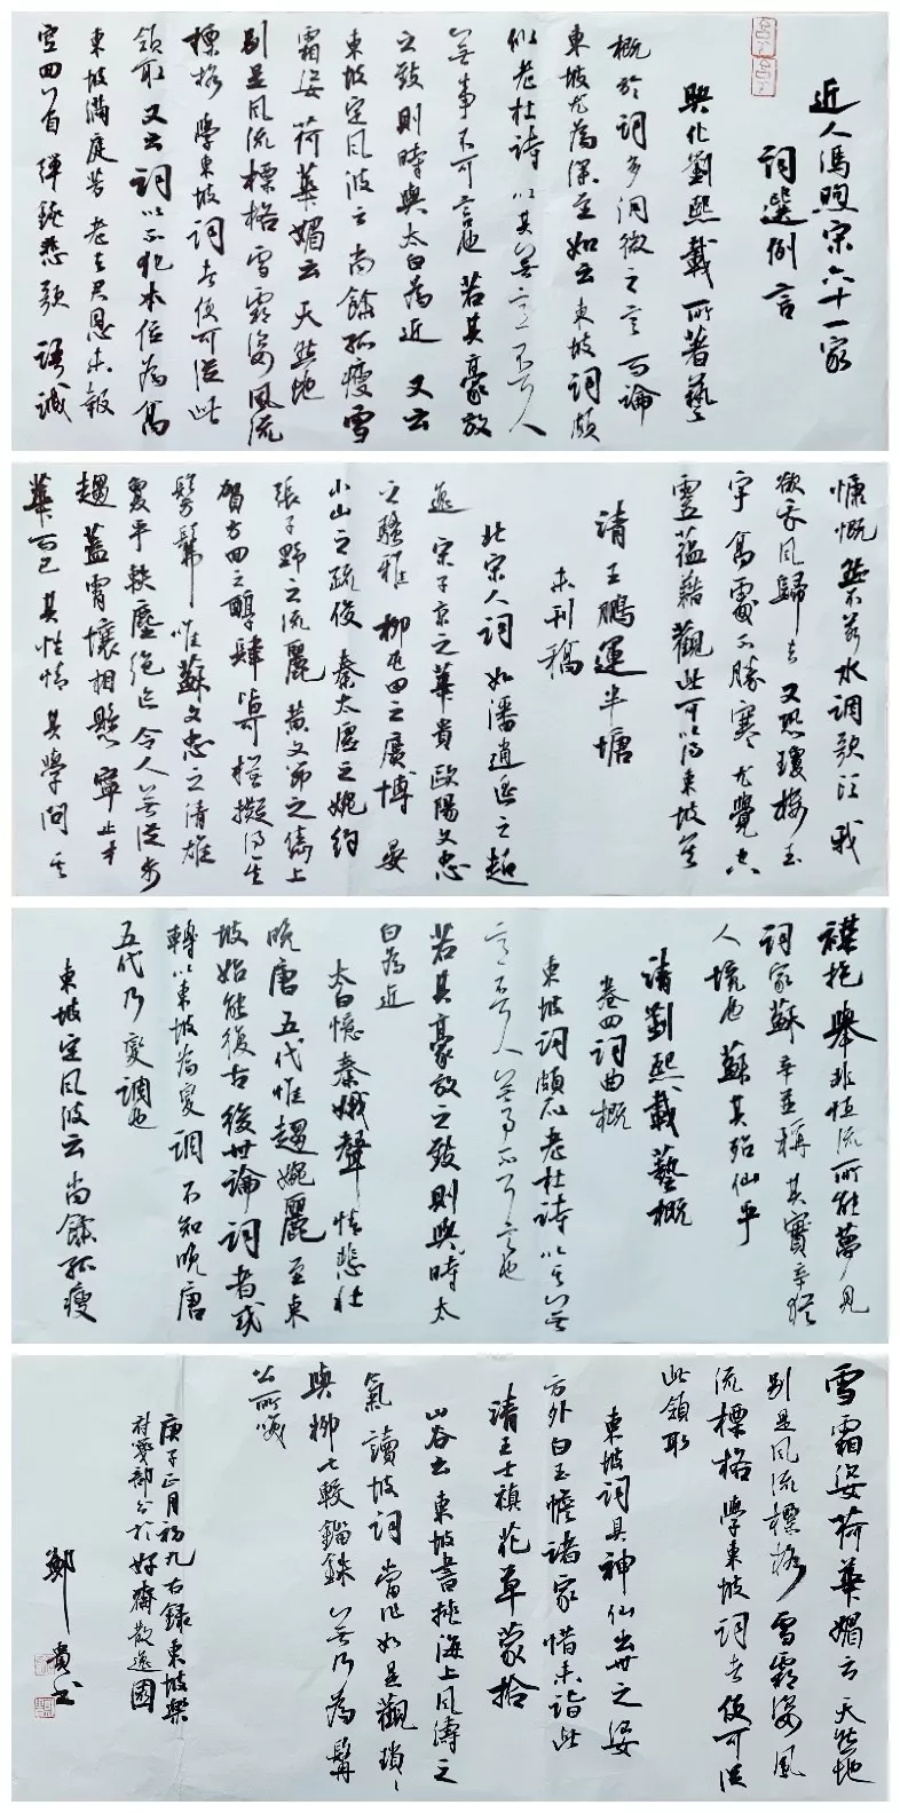 近人馮煦宋六十一家
詞選例言
興化劉熙載所著藝
概於詞多洞微之言而論
東坡尤為深至如云東坡詞頗
似老杜詩以其無意不可入
無事不可言也若其豪放
之致則時與太白為近又云
東坡定風波云尚餘孤瘦雪
霜姿荷華媚云天然地
別是風流標格雪霜姿風流
標格學東坡詞者便可從此
領取又云詞以不犯本位為高
東坡滿庭芳老去君恩未報
空回首彈鋏悲歌語誠
慷慨然不若水調歌頭我
欲乘風歸去又恐瓊樓玉
宇高處不勝寒尤覺空
靈蘊藉觀此可以得東坡矣
清王鵬運半塘
未刊稿
北宋人詞如潘逍遙之超
逸宋子京之華貴歐陽文忠
之騷雅柳屯田之廣博晏
小山之疏俊秦太虛之婉約
張子野之流麗黃文節之儁上
賀方回之醇肆皆可模擬得其
髣髴惟蘇文忠之清雄
夐乎軼塵絕迹令人無從步
趨蓋霄壤相懸寧止才
華而已其性情其學問其
襟抱舉非恒流所能夢見
詞家蘇辛並稱其實辛猶
人境也蘇其殆仙乎
清劉熙載藝概
卷四詞曲概
東坡詞頗似老杜詩以其無
意不可入無事不可言也
若其豪放之致則與時太
白為近
太白憶秦娥聲情悲壯
晚唐五代惟趨婉麗至東
坡始能復古後世論詞者或
轉以東坡為變調不知晚唐
五代乃變調也
東坡定風波云尚餘孤瘦
雪霜姿荷華媚云天然地
別是風流標格雪霜姿風
流標格學東坡詞者便可從
此領取
東坡詞具神仙出世之姿
方外白玉蟾諸家惜未詣此
清王士禎花草蒙拾
山谷云東坡書挾海上風濤之
氣讀坡詞當作如是觀瑣瑣
與柳七較錙銖無乃為髯
公所笑
庚子正月初九右錄東坡樂
府箋部分於好齋散逸園
鄭貴書